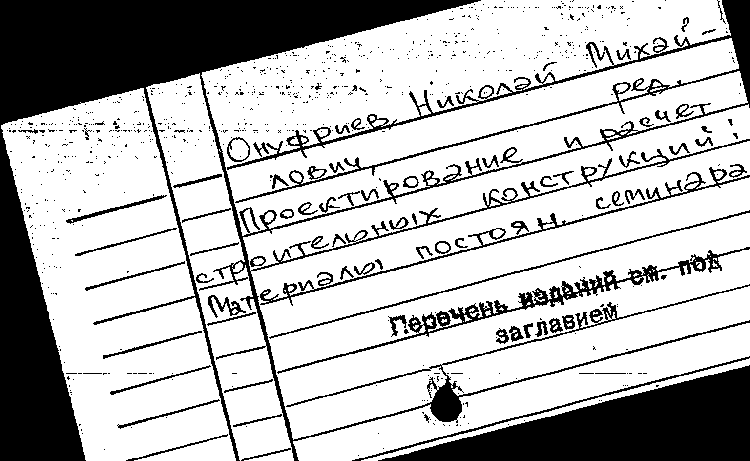 Онуфриев, Николай Михай-
лович, ред.
Проектирование и расчет
строительных конструкций:
Материалы постоян. семинара
Перечень изданий см. под
заглавием